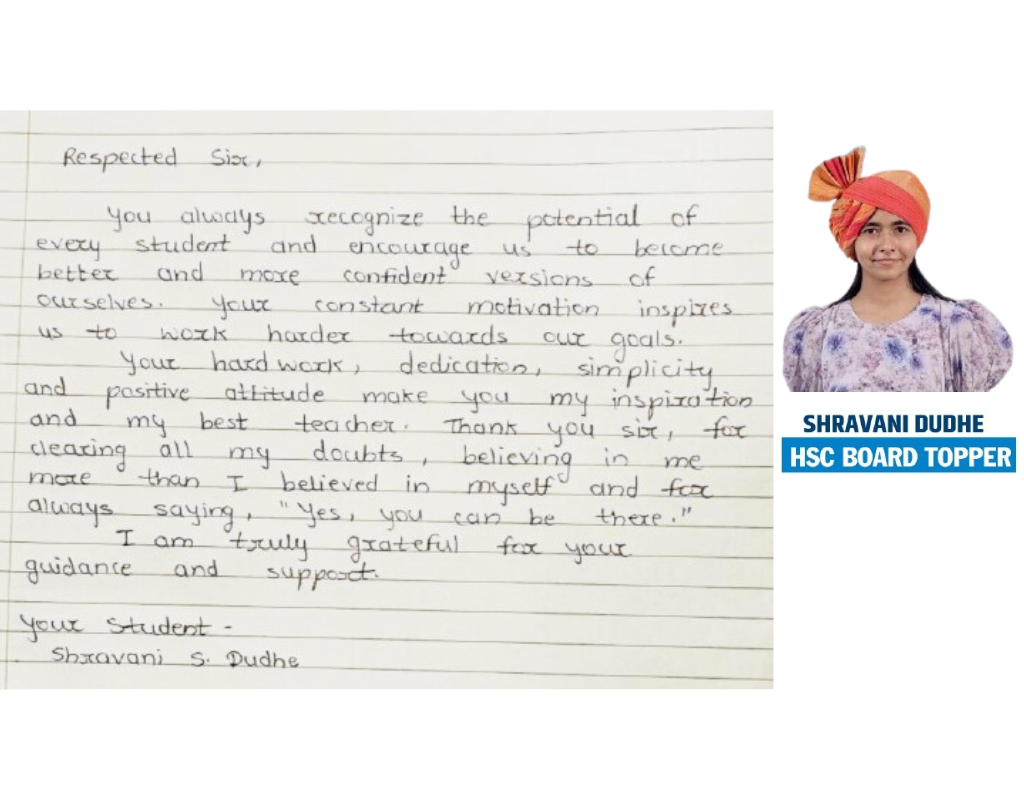 Respected Sir,
You always recognize the potential of
every student and encourage us to become
better and more confident versions of
ourselves. Your constant motivation inspires
us to work harder towards our goals.
Your hardwork, dedication, simplicity
and positive attitude make you my inspiration
and my best teacher. Thank you sir, for
clearing all my doubts, believing in me
more than I believed in myself and for
always saying, "Yes, you can be there."
I am truly grateful for your
guidance and support.
Your Student -
Shravani S. Dudhe
SHRAVANI DUDHE
HSC BOARD TOPPER